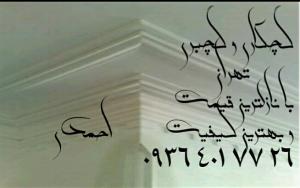 گچکار و گچبر
تهران
با نازلترین قیمت
و بهترین کیفیت
احمدی
۰۹۳۶ ۴۰۱ ۷۷ ۲۶